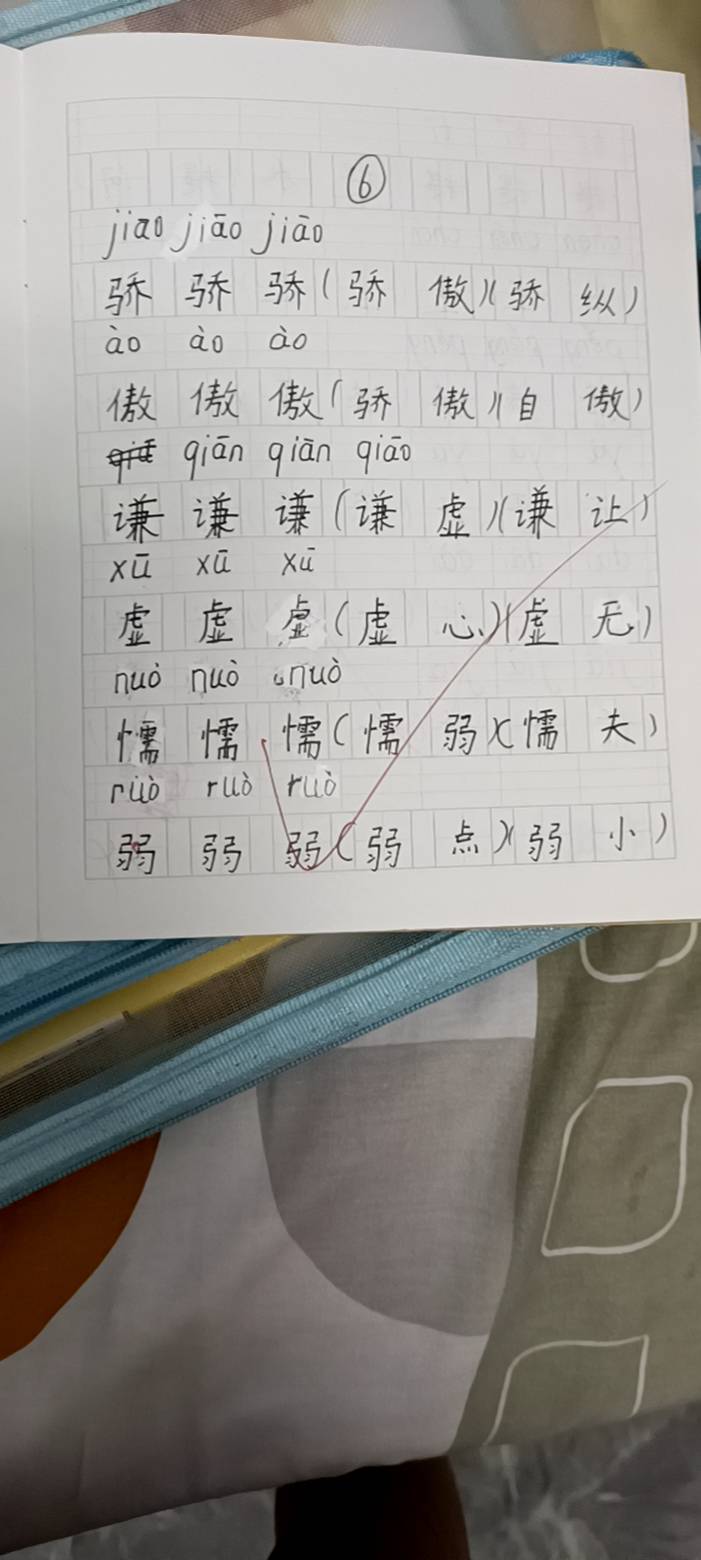 ⑥
jiāo jiāo jiāo
骄 骄 骄(骄 傲)(骄 纵)
ào ào ào
傲 傲 傲(骄 傲)(自 傲)
qiān qiān qiāo
谦 谦 谦(谦 虚)(谦 让)
xū xū xū
虚 虚 虚(虚 心)(虚 无)
nuò nuò nuò
懦 懦 懦(懦 弱)(懦 夫)
ruò ruò ruò
弱 弱 弱(弱 点)(弱 小)